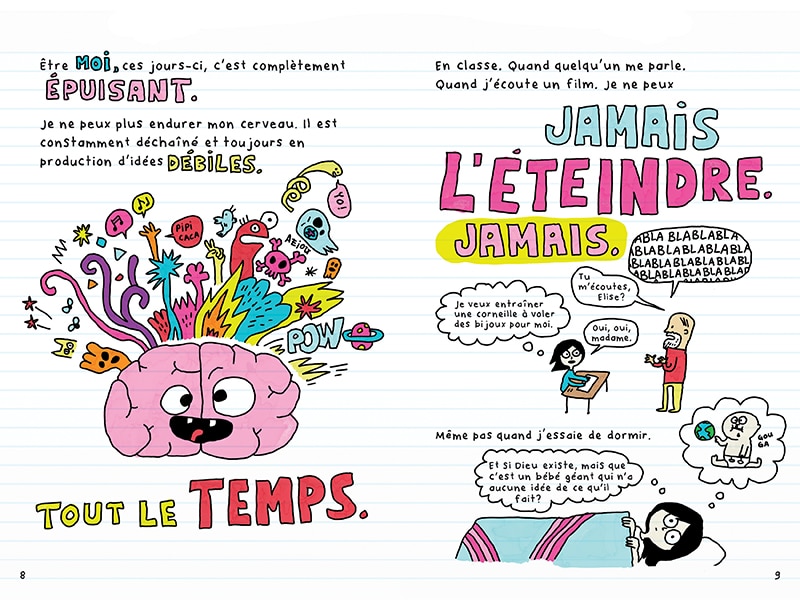 Être MOi, ces jours-ci, c'est complètement
ÉPUISANT.
Je ne peux plus endurer mon cerveau. Il est
constamment déchaîné et toujours en
production d'idées DÉBILES.
YO!
PIPI
CACA
AZIOU
POW
TOUT LE TEMPS.
8
En classe. Quand quelqu'un me parle.
Quand j'écoute un film. Je ne peux
JAMAiS
L'ÉTEINDRE.
JAMAIS.
ABLA BLABLABLA
ABLABLABLABLA
BLABLABLABLA
ABLABLABLABLA
Tu
m'écoutes,
Elise?
Je veux entraîner
une corneille à voler
des bijoux pour moi.
Oui, oui,
madame.
Même pas quand j'essaie de dormir.
GOU
GA
Et si Dieu existe, mais que
c'est un bébé géant qui n'a
aucune idée de ce qu'il
fait?
9